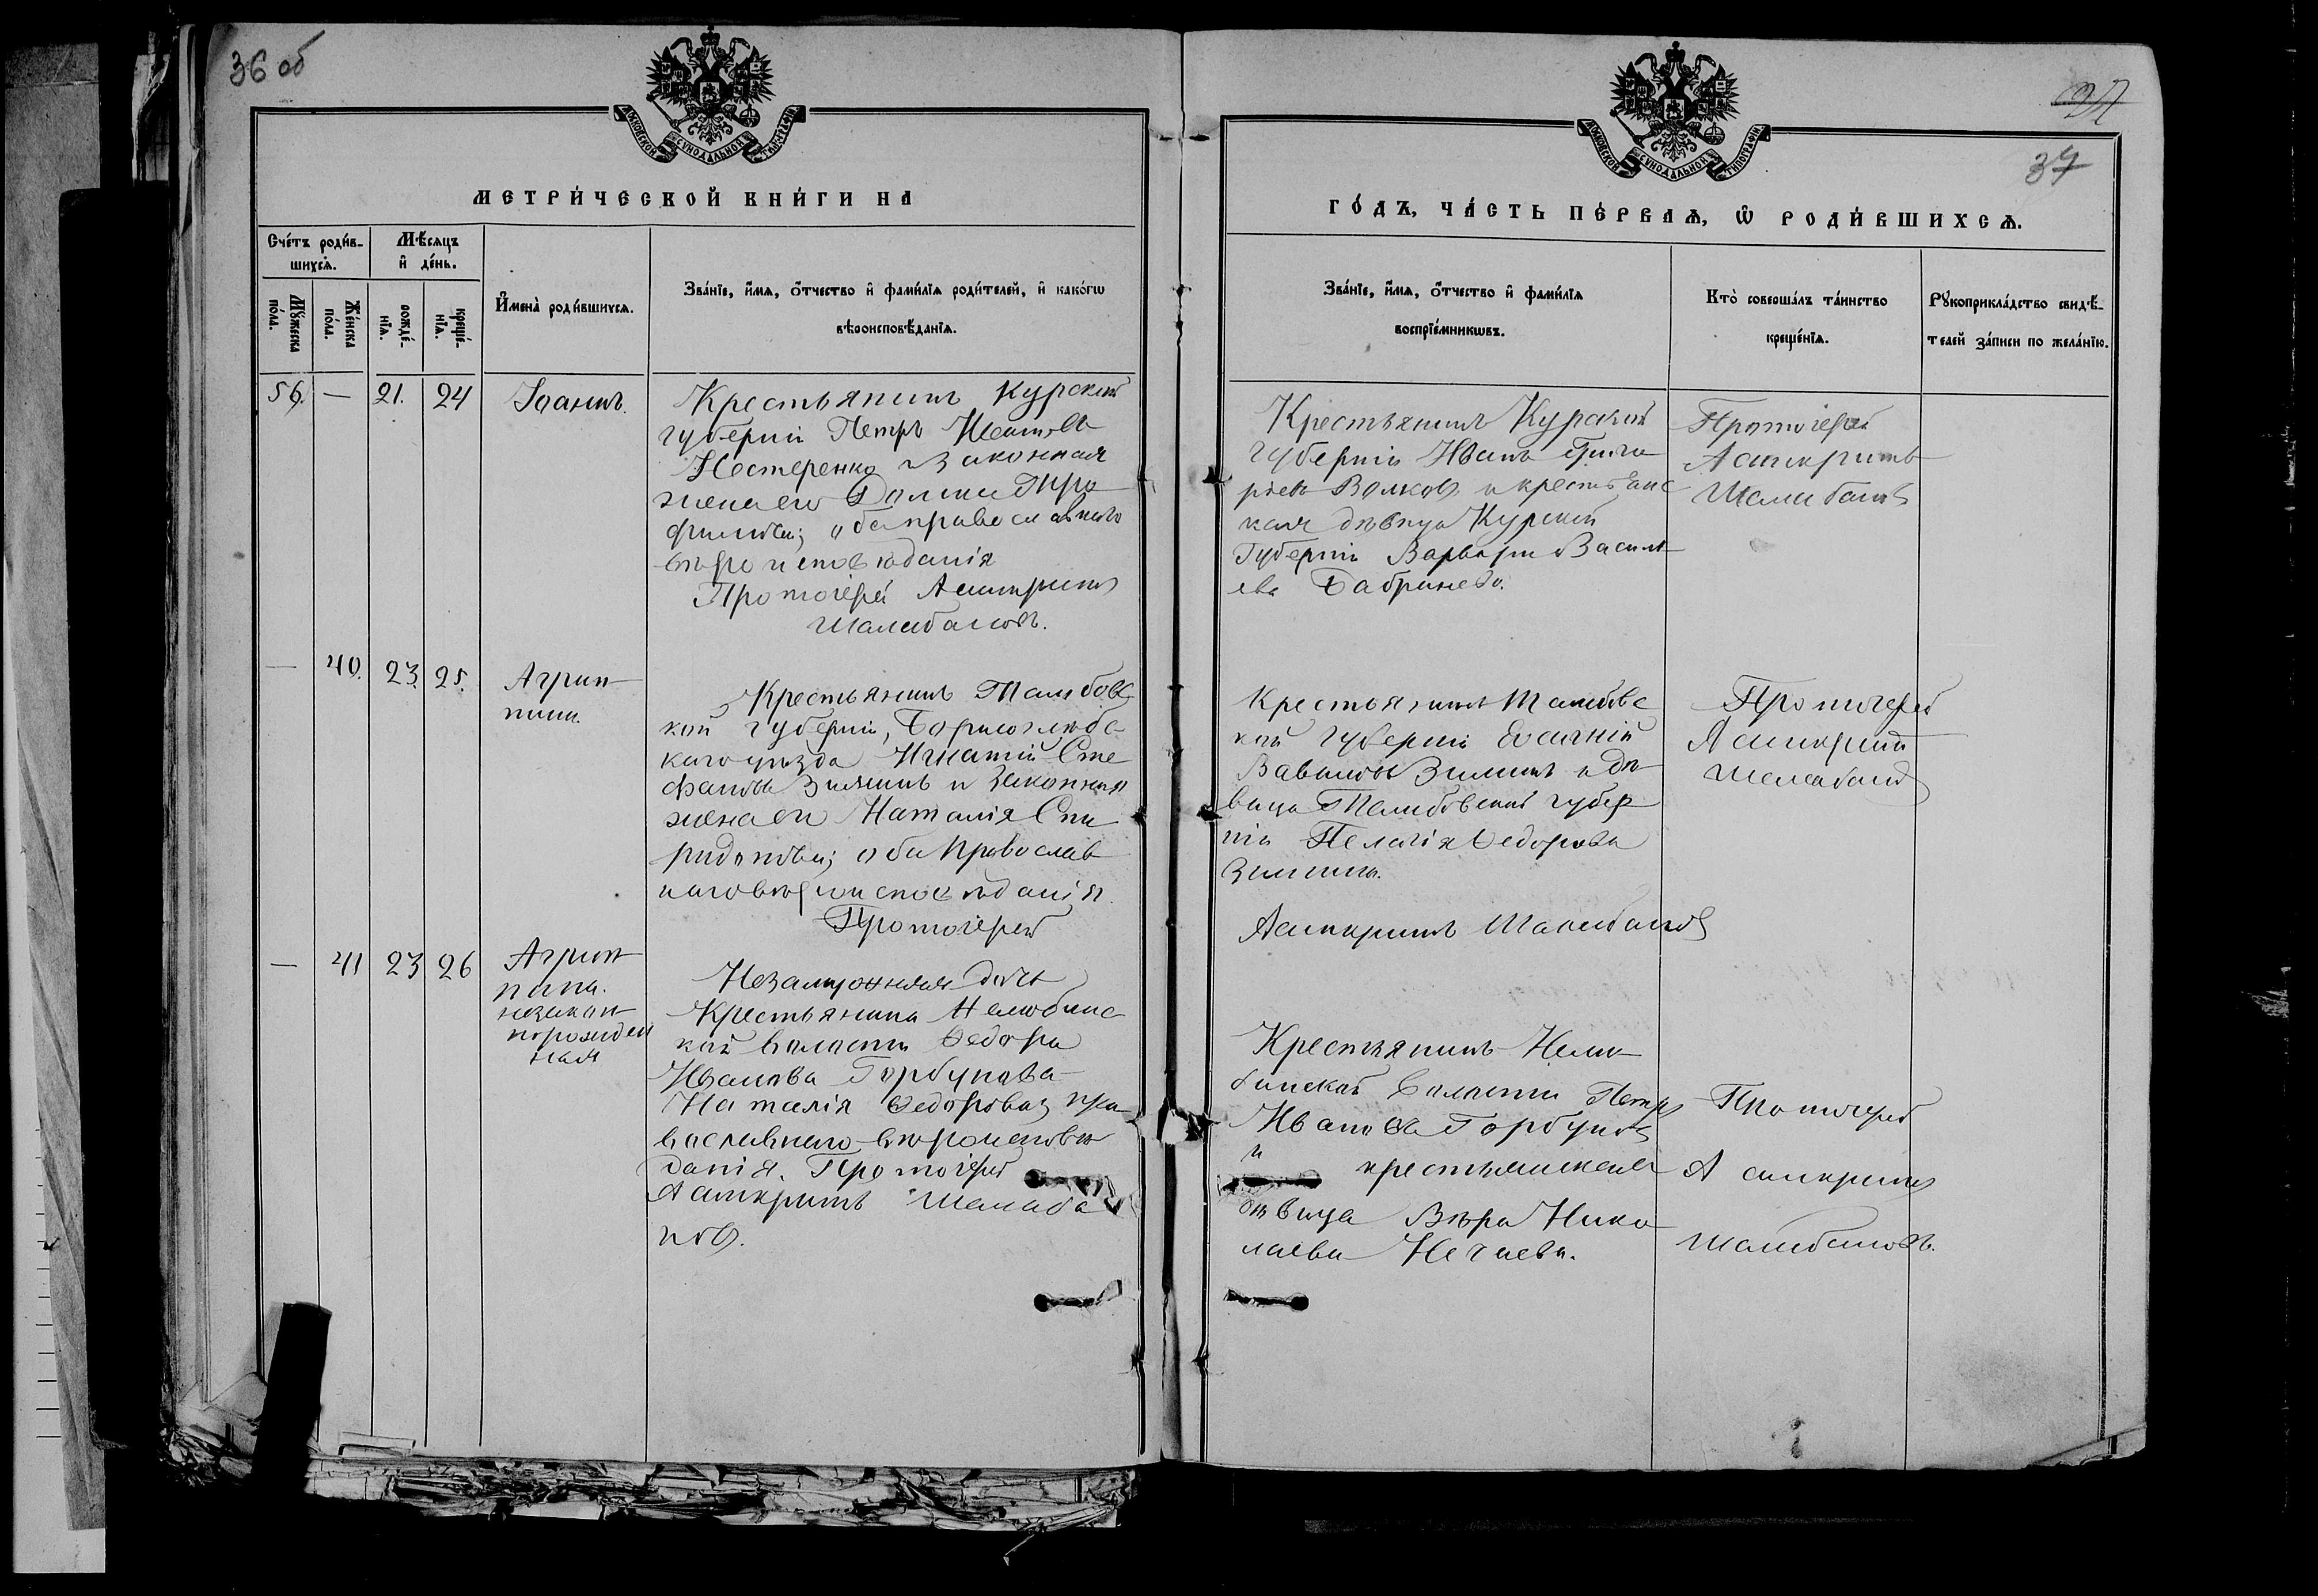 36 об
МОСКОВСКОЙ СѴНОДАЛЬНОЙ ТИПОГРАФІИ
МЕТРИ́ЧЕСКОЙ КНИ́ГИ НА
Сче́тъ роди́в-
шихсѧ.
Мѣ́сяцъ
и҆ де́нь.
Мꙋ́жеска
по́ла.
Же́нска
по́ла.
рожде́-
нїѧ.
креще́-
нїѧ.
И҆мена̀ роди́вшихсѧ.
Зва́нїе, и҆́мѧ, ѻ҆́тчество и҆ фами́лїѧ роди́телей, и҆ како́гѡ
вѣроисповѣ́данїѧ.
56. — 21. 24
Іоаннъ.
Крестьянинъ Курской
губерніи Петръ
Нестеренко законная
жена его Тро
фимова; оба православнаго
вѣроисповѣданія
Протоіерей Асинкритъ
Шалабановъ.
— 40. 23. 25.
Агрип
пина.
Крестьянинъ Тамбовс
кой губерніи, Борисоглѣбс
каго уѣзда Игнатій Сте
фановъ Зиминъ и законная
жена его Наталія Спи
ридонова; оба православ
наго вѣроисповѣданія.
Протоіерей
— 41 23 26
Агрип
пина.
незакон
норожден
ная
Незаконная дочь
Крестьянина Нелюбинс
кой волости Ѳедора
Иванова Горбунова
Наталія Ѳедорова; пра
вославнаго вѣроисповѣ
данія. Протоіерей
Асинкритъ Шалаба
новъ.
37
37
МОСКОВСКОЙ СѴНОДАЛЬНОЙ ТИПОГРАФІИ
ГО́ДЪ, ЧА́СТЬ ПЕ́РВАѦ, Ѡ҆ РОДИ́ВШИХСѦ.
Зва́нїе, и҆́мѧ, ѻ҆́тчество и҆ фами́лїѧ
воспрїе́мникѡвъ.
Кто̀ соверша́лъ та́инство
креще́нїѧ.
Рꙋкоприкла́дство свидѣ́-
телей за́писи по жела́нїю.
Крестьянинъ Курской
губерніи Иванъ Григо
рьевъ Волковъ и крестьянс
кая дѣвица Курской
Губерніи Варвара Василь
ева
Протоіерей
Асинкритъ
Шалабановъ
Крестьянинъ Тамбовс
кой губерніи
Вавиловъ Зиминъ и дѣ
вица Тамбовской губер
ніи Пелагія Ѳедорова
Зимина.
Асинкритъ Шалабановъ
Протоіерей
Асинкритъ
Шалабановъ
Крестьянинъ Нелю
бинской волости Петръ
Ивановъ Горбуновъ
и крестьянская
дѣвица Вѣра Нико
лаева Нечаева.
Протоіерей
Асинкритъ
Шалабановъ.